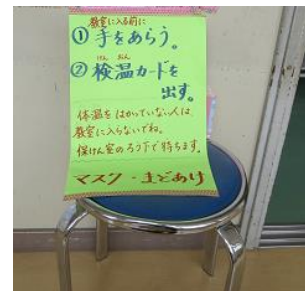 教室に入る前に
① 手をあらう。
② 検温カードを
けん おん
出す。
体温を はかっていない人は、
教室に入らないでね。
保けん室のろう下で待ちます。
マスク・まどあけ